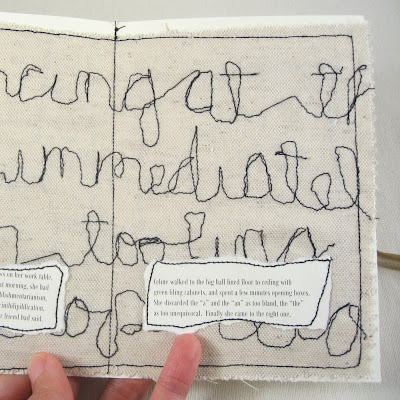 ncing at th
mmediatel
ws on her work table,
t morning, she had
blishmentarianism,
cinihilipilification,
r friend had said.
walked to the big hall lined floor to ceiling with
green filing cabinets, and spent a few minutes opening boxes.
She discarded the "a" and the "an" as too bland, the "the"
as too unequivocal. Finally she came to the right one.